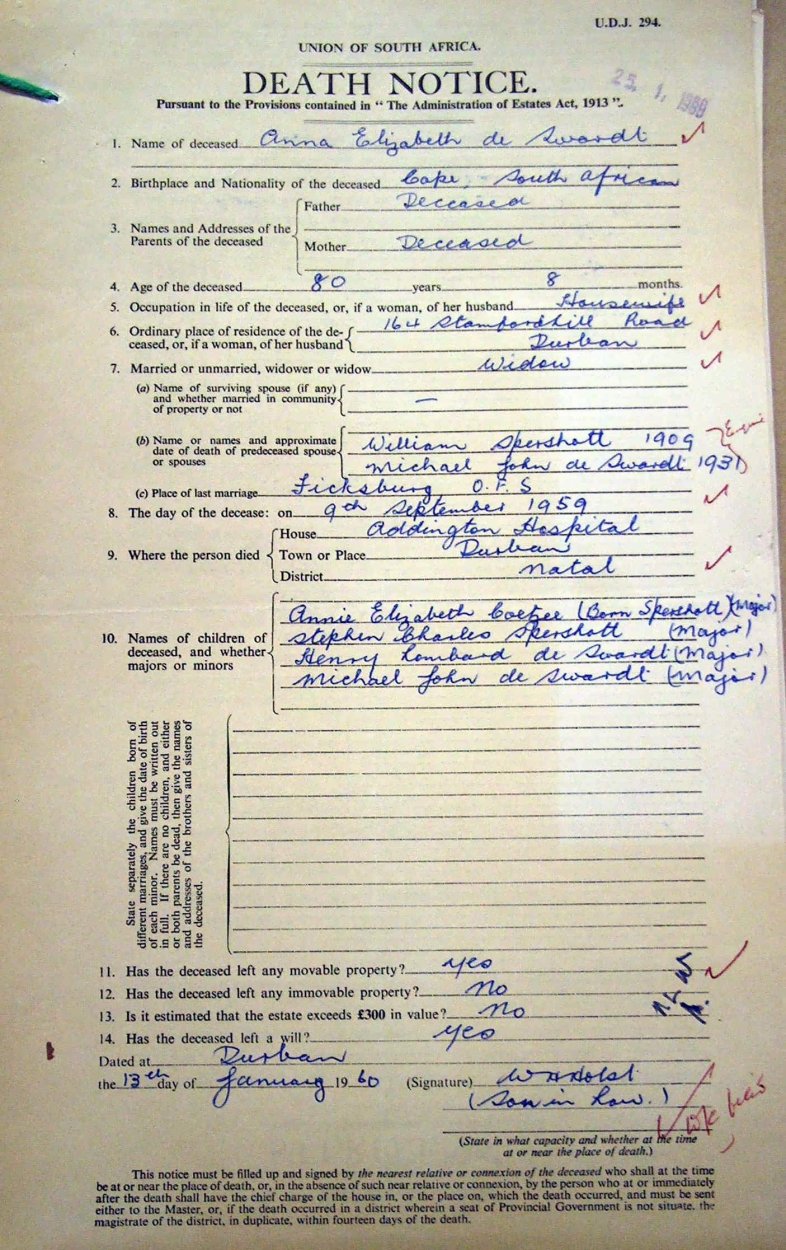 U.D.J. 294.
UNION OF SOUTH AFRICA.
DEATH NOTICE.
25. 1.
Pursuant to the Provisions contained in "The Administration of Estates Act, 1913".
1. Name of deceased Anna Elizabeth de Swardt
2. Birthplace and Nationality of the deceased Cape, South African
3. Names and Addresses of the Parents of the deceased
Father Deceased
Mother Deceased
4. Age of the deceased 80 years 8 months.
5. Occupation in life of the deceased, or, if a woman, of her husband Housewife
6. Ordinary place of residence of the de-
ceased, or, if a woman, of her husband
164 Stamfordhill Road
Durban
7. Married or unmarried, widower or widow Widow
(a) Name of surviving spouse (if any)
and whether married in community
of property or not
—
(b) Name or names and approximate
date of death of predeceased spouse
or spouses
William Spershott 1909
Michael John de Swardt 1931
(c) Place of last marriage Ficksburg O.F.S
8. The day of the decease: on 9th September 1959
9. Where the person died
House Addington Hospital
Town or Place Durban
District Natal
10. Names of children of
deceased, and whether
majors or minors
Annie Elizabeth Coetzee (Born Spershott) (Major)
Stephen Charles Spershott (Major)
Henry Lombard de Swardt (Major)
Michael John de Swardt (Major)
State separately the children born of
different marriages, and give the date of birth
of each minor. Names must be written out
in full. If there are no children, and either
or both parents be dead, then give the names
and addresses of the brothers and sisters of
the deceased.
11. Has the deceased left any movable property? Yes
12. Has the deceased left any immovable property? No
13. Is it estimated that the estate exceeds £300 in value? No
14. Has the deceased left a will? Yes
Dated at Durban
the 13th day of January 1960 (Signature) W H Holst
(Son in Law.)
(State in what capacity and whether at the time
at or near the place of death.)
This notice must be filled up and signed by the nearest relative or connexion of the deceased who shall at the time
be at or near the place of death, or, in the absence of such near relative or connexion, by the person who at or immediately
after the death shall have the chief charge of the house in, or the place on, which the death occurred, and must be sent
either to the Master, or, if the death occurred in a district wherein a seat of Provincial Government is not situate, the
magistrate of the district, in duplicate, within fourteen days of the death.